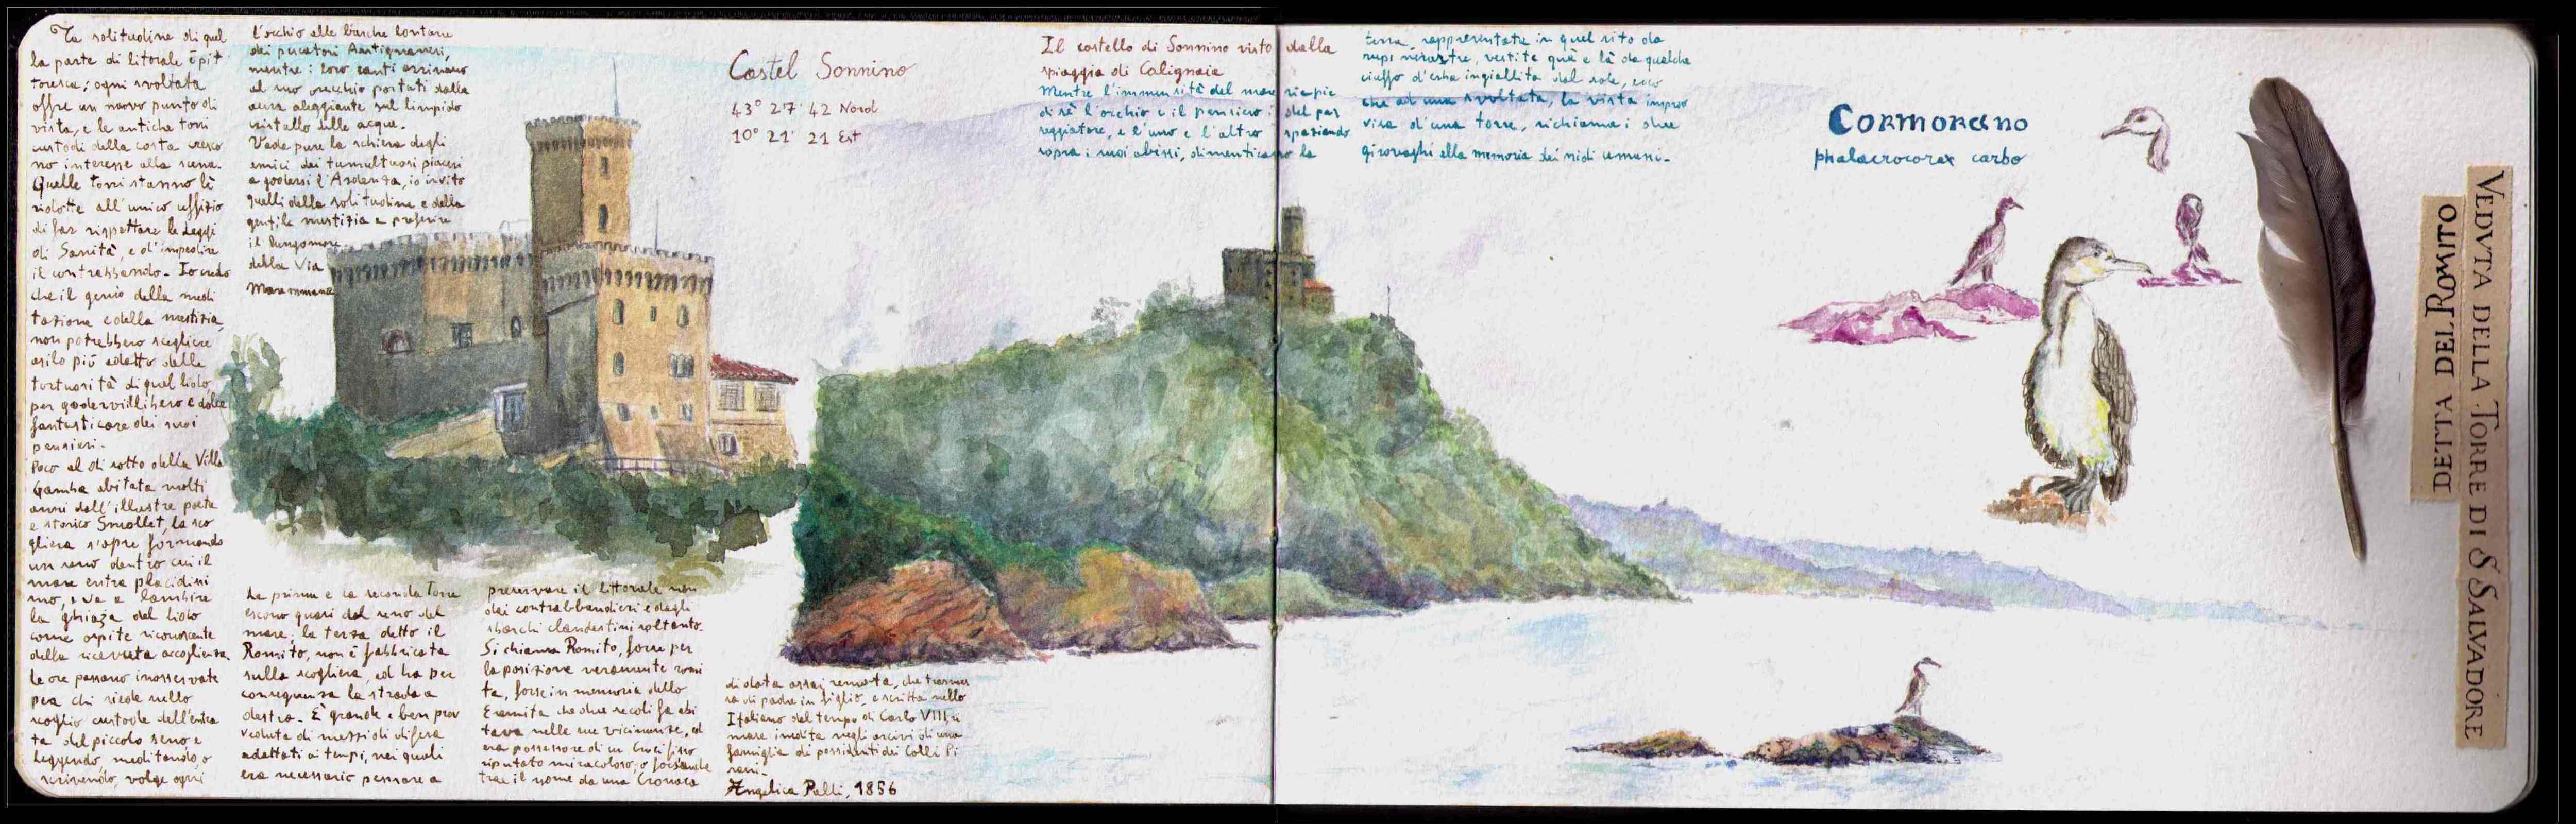 La solitudine di quel
la parte di litorale è pit
toresca; ogni svoltata
offre un nuovo punto di
vista, e le antiche torri
custodi della costa cresco
no interesse alla scena.
Quelle torri stanno lì
ridotte all'unico uffizio
di far rispettare le Leggi
di Sanità, e d'impedire
il contrabbando. Io credo
che il genio della medi
tazione e della mestizia,
non potrebbero scegliere
asilo più adatto delle
tortuosità di quel lido,
per godervi il libero e dolce
fantasticare dei suoi
pensieri.
Poco al di sotto della Villa
Gamba abitata molti
anni dall'illustre poeta
e storico Smollet, la sco
gliera s'apre formando
un seno dentro cui il
mare entra placidissi
mo, e va a lambire
la ghiaja del lido
come ospite riconoscente
della ricevuta accoglienza.
Le ore passano inosservate
per chi siede nello
scoglio custode dell'entra
ta del piccolo seno, e
leggendo, meditando, o
scrivendo, volge ogni
l'occhio alle barche lontane
dei pescatori Antignanesi,
mentre i loro canti arrivano
al suo orecchio portati dalla
aura aleggiante sul limpido
cristallo delle acque.
Vada pure la schiera degli
amici dei tumultuosi piaceri
a godersi l'Ardenza, io invito
quelli della solitudine e della
gentile mestizia a preferire
il lungomare
della Via
Maremmana
La prima e la seconda Torre
escono quasi dal seno del
mare; la terza detto il
Romito, non è fabbricata
sulla scogliera, ed ha per
conseguenza la strada a
destra. È grande e ben prov
veduta di mezzi di difesa
adattati ai tempi, nei quali
era necessario pensare a
preservare il littorale non
dai contrabbandieri e dagli
sbarchi clandestini soltanto.
Si chiama Romito, forse per
la posizione veramente romi
ta, forse in memoria dello
Eremita che due secoli fa abi
tava nelle sue vicinanze, ed
era possessore di un Crocifisso
riputato miracoloso, o forse anche
trae il nome da una Cronaca
di data assai remota, che trasmes
sa di padre in figlio, e scritta nello
Italiano del tempo di Carlo VIII ri
mase inedita negli arcivi di una
famiglia di possidenti dei Colli Pi
sani.
Angelica Palli, 1856
Castel Sonnino
43° 27' 42 Nord
10° 21' 21 Est
Il castello di Sonnino visto dalla
spiaggia di Calignaia
Mentre l'immensità del mare riempie
di sè l'occhio e il pensiero del pas
seggiatore, e l'uno e l'altro spaziando
sopra i suoi abissi, dimenticano la
terra, rappresentata in quel sito da
rupi nerastre, vestite quà e là da qualche
ciuffo d'erba ingiallita dal sole, ecco
che ad una svoltata, la vista improv
visa d'una torre, richiama i due
girovaghi alla memoria dei nidi umani.
Cormorano
phalacrocorax carbo
VEDVTA DELLA TORRE DI S SALVADORE
DETTA DEL ROMITO